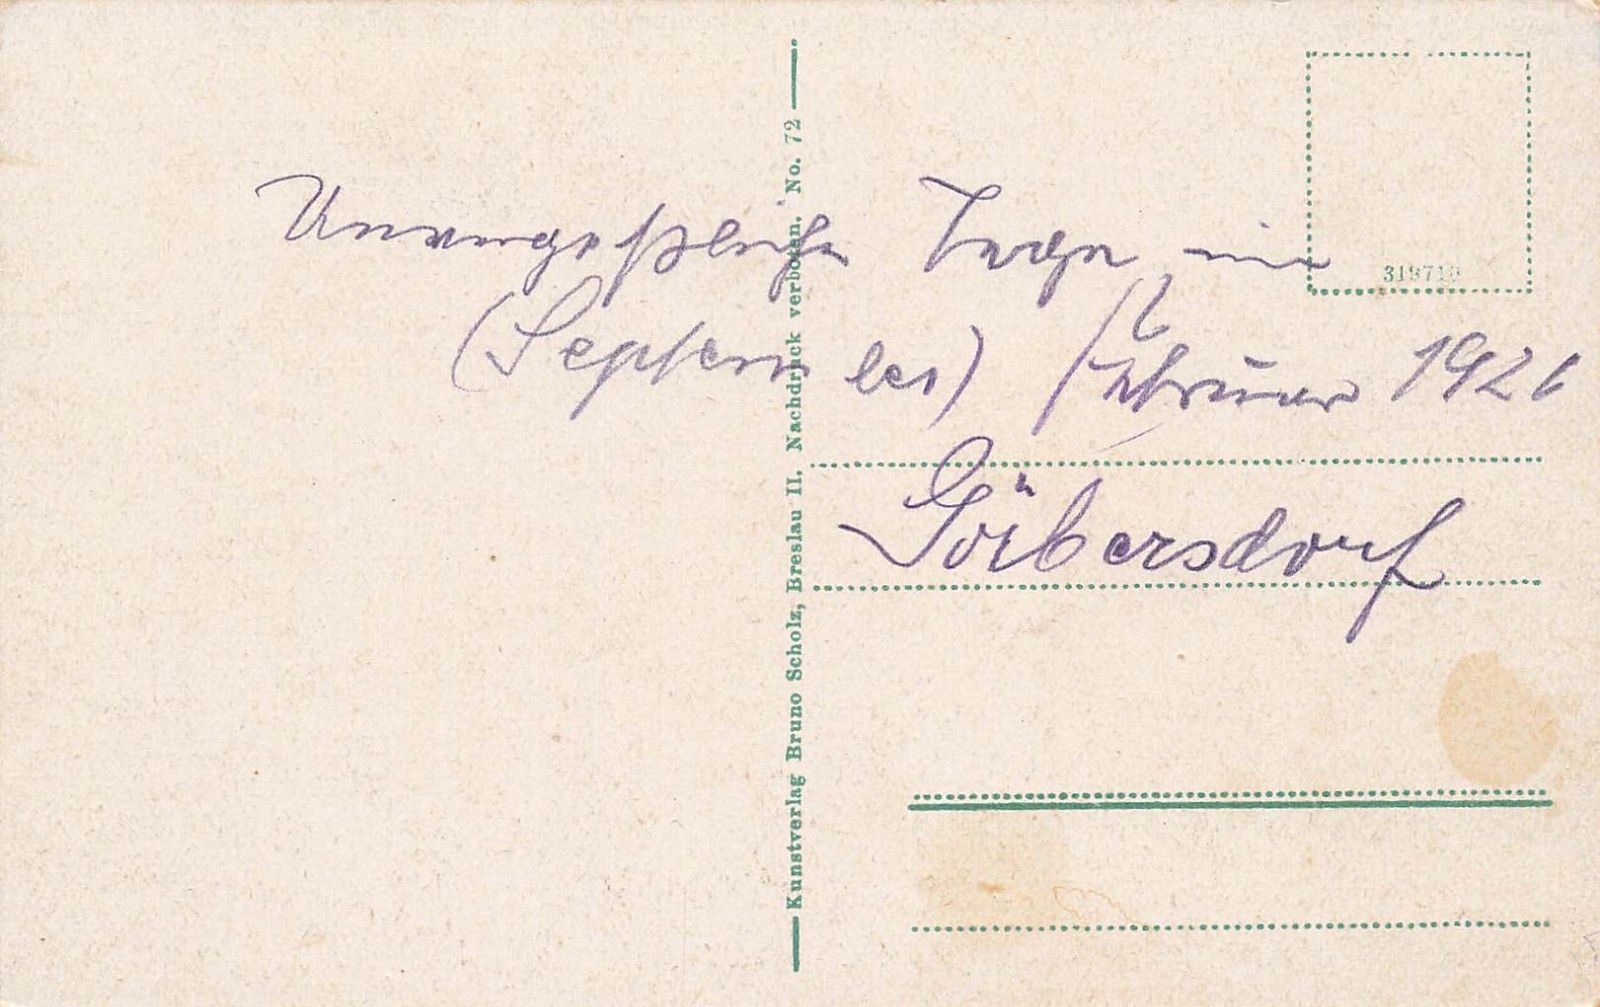 Unvergeßliche Tage im
(September) Februar 1921
Görbersdorf
Kunstverlag Bruno Scholz, Breslau II. Nachdruck verboten. No. 72